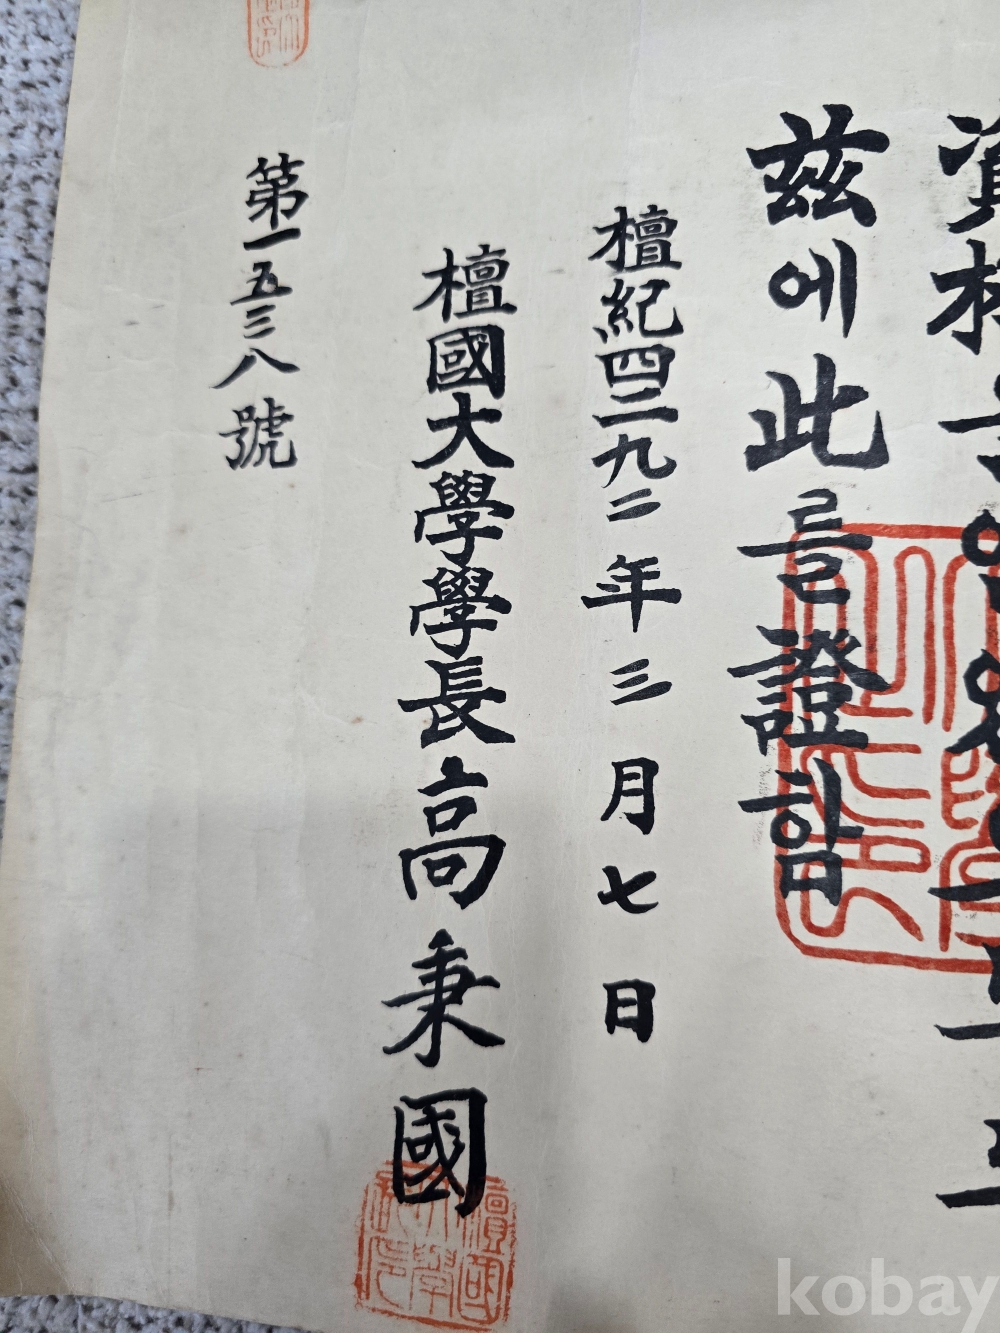 資格
茲에此를證함
檀紀四二九二年三月七日
檀國大學學長高秉國
第一五三八號
kobay